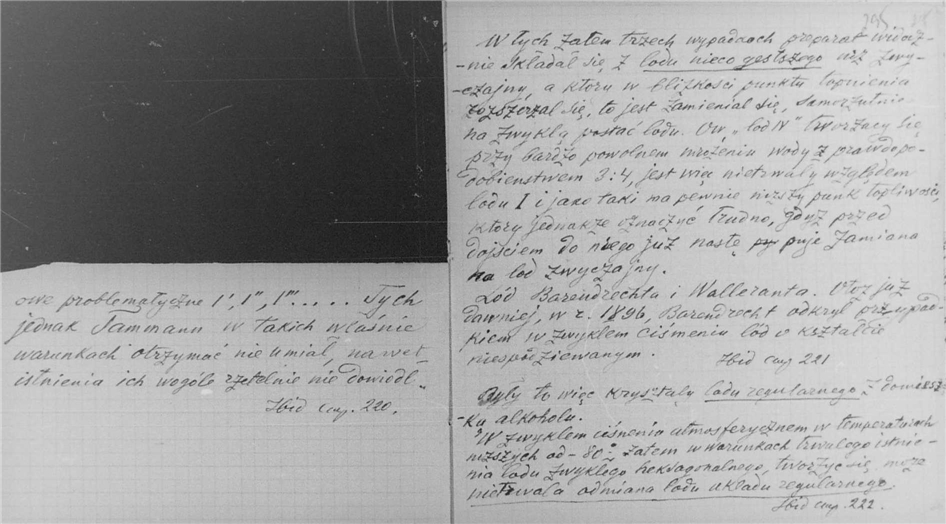 owe problematyczne 1', 1", 1"'..... Tych
jednak Tammann w takich właśnie
warunkach otrzymać nie umiał, nawet
istnienia ich wogóle rzetelnie nie dowiódł."
Ibid стр. 220.
W tych zatem trzech wypadkach preparat widocz-
-nie składał się z lodu nieco gęstszego niż zwy-
-czajny, a który w bliskości punktu topnienia
rozszerzał się, to jest zamieniał się, samorzutnie
na zwykłą postać lodu. Ów „lod IV" tworzący się
przy bardzo powolnem mrożeniu wody z prawdopo-
dobieństwem 3:4, jest więc nietrwały względem
lodu I i jako taki ma pewnie niższy punk topliwości,
który jednakże oznaczyć trudno, gdyż przed
dojściem do niego już nastę puje zamiana
na lod zwyczajny.
Lód Barendrechta i Walleranta. Otoż już
dawniej, w r. 1896, Barendrecht odkrył przypad-
kiem w zwykłem ciśnieniu lód o kształcie
niespodziewanym.
Ibid стр 221
Były to więc kryształy lodu regularnego z domiesz-
-ku alkoholu.
"W zwykłem ciśnieniu atmosferycznem w temperaturach
niższych od -80° zatem w warunkach trwałego istnie-
nia lodu zwykłego heksagonalnego, tworzyć się może
nietrwała odmiana lodu układu regularnego.
Ibid стр. 222.